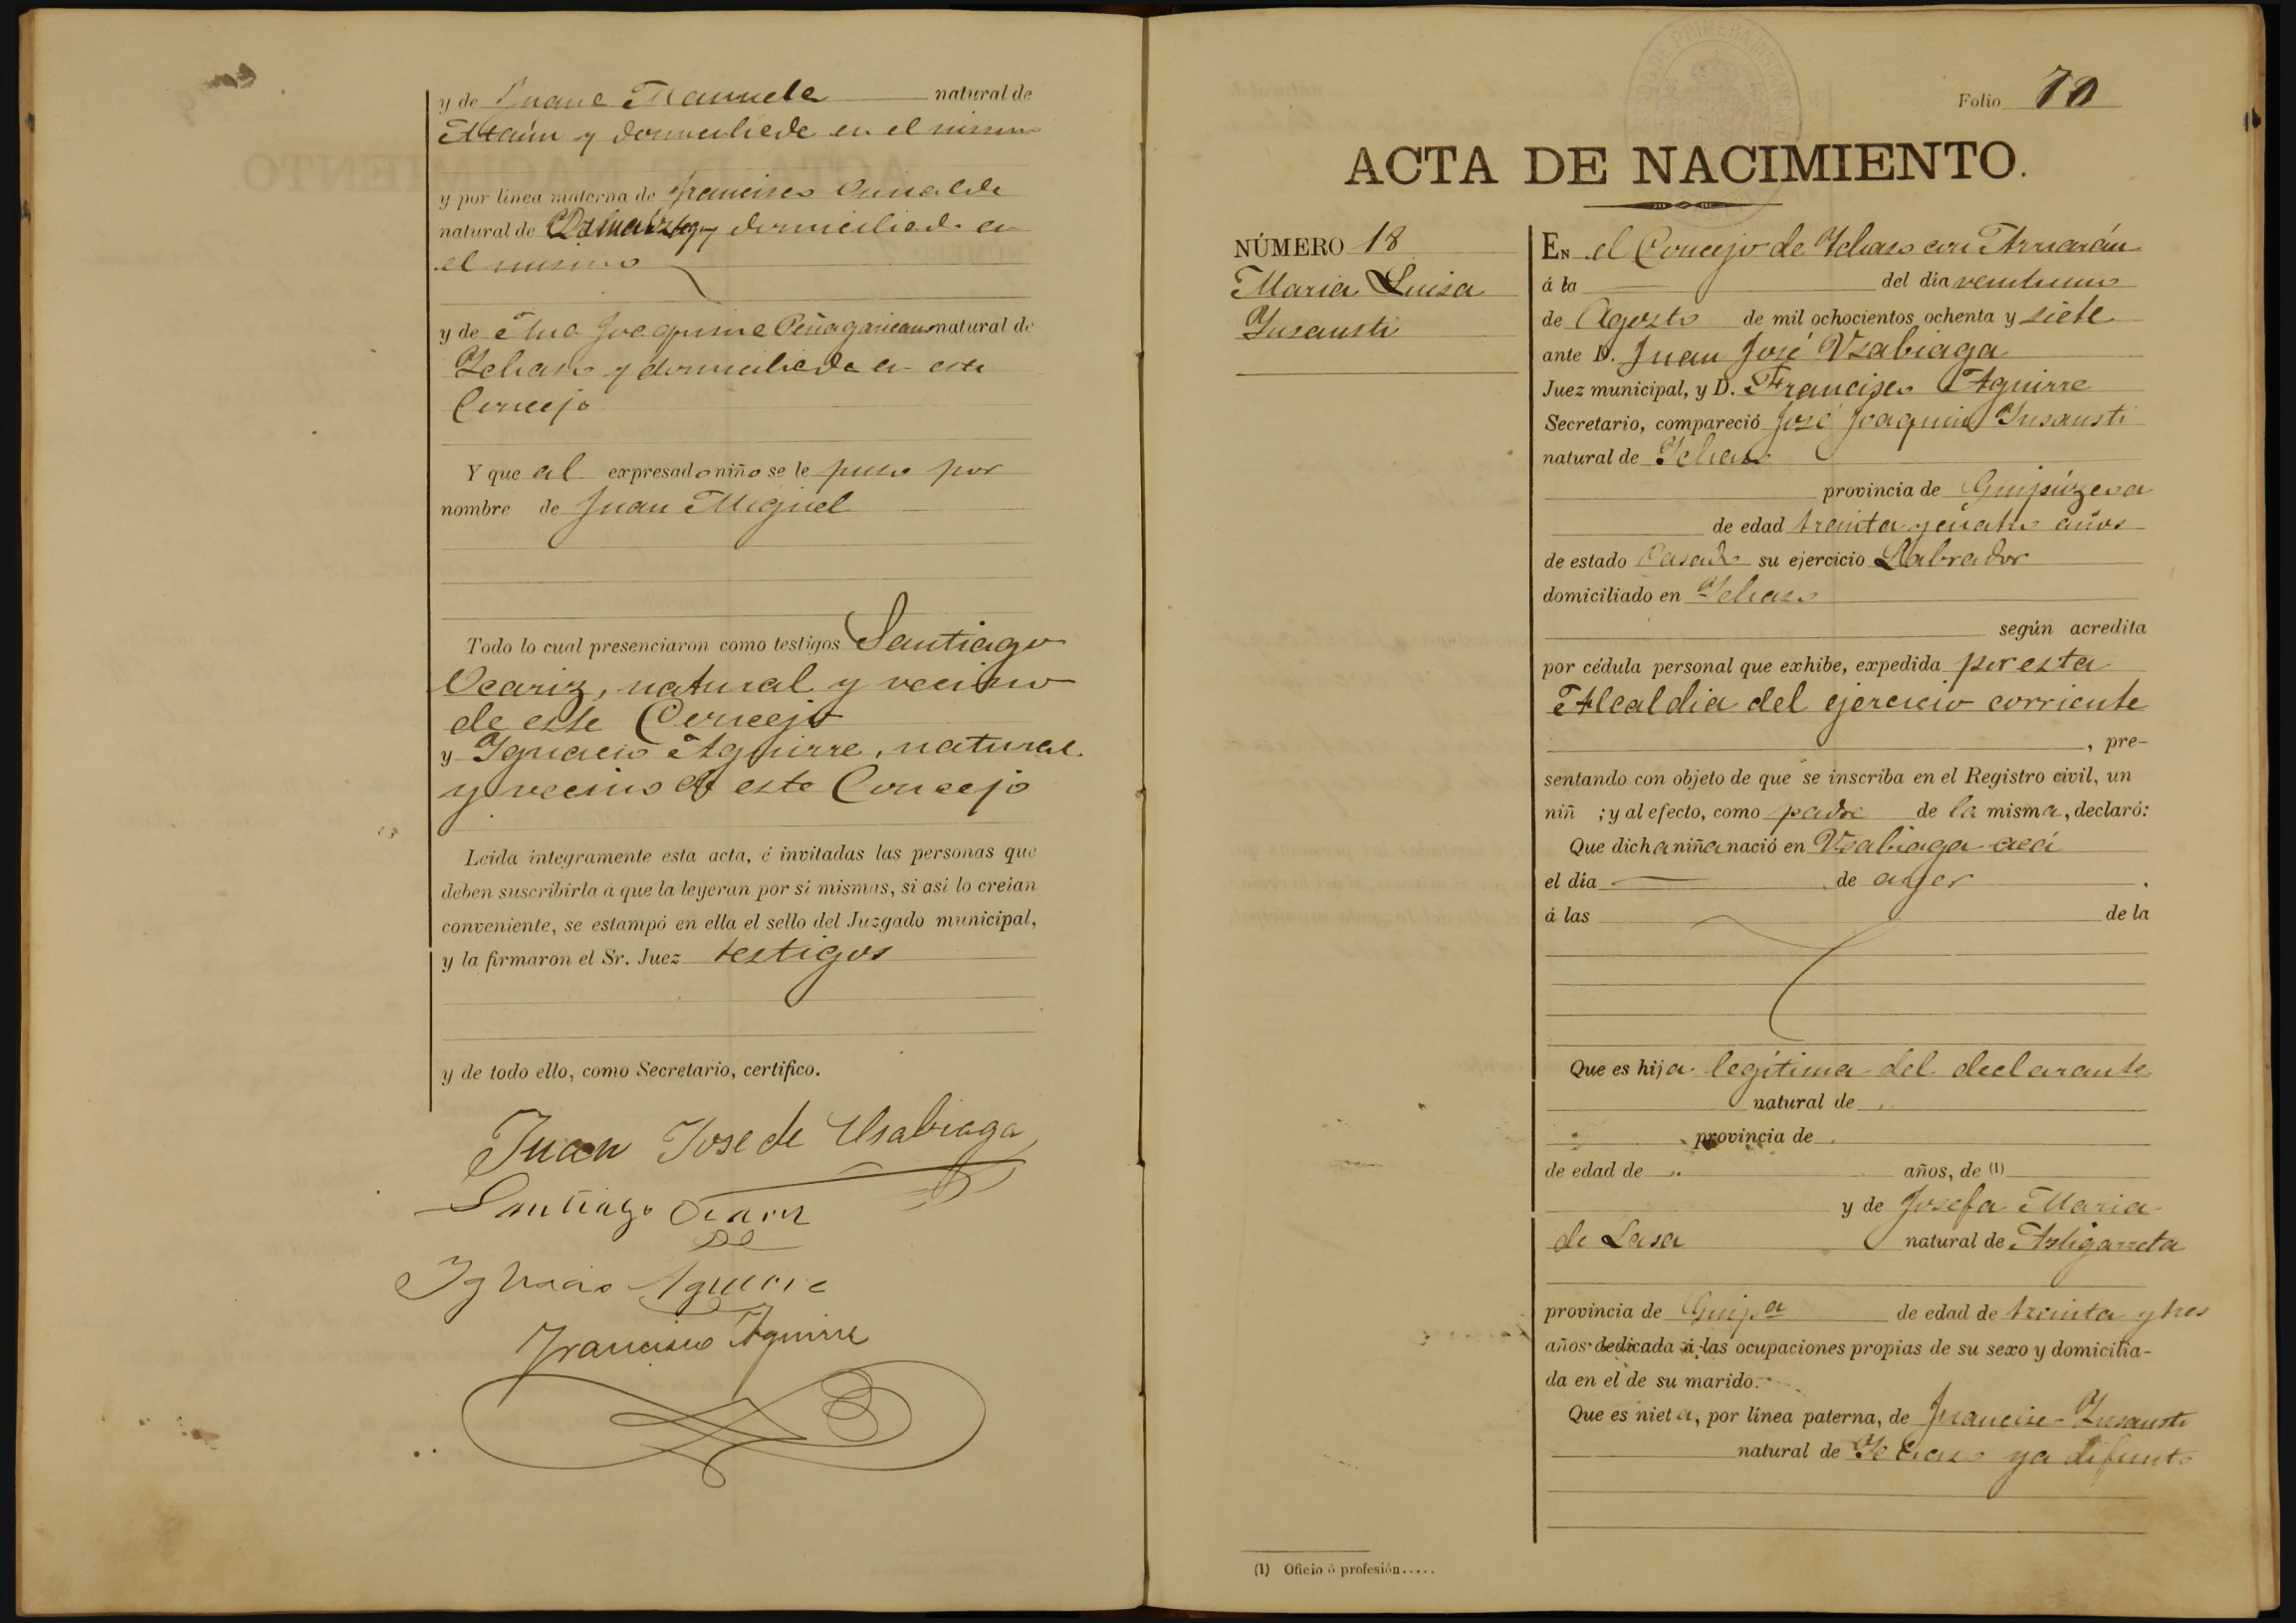 y de Juana Manuela natural de
Ataún y domiciliada en el mismo
y por línea materna de Francisco
natural de y domiciliado en
el mismo
y de Ana Joaquina Peñagaricano natural de
Ichaso y domiciliada en este
Concejo
Y que al expresado niño se le puso por
nombre de Juan Miguel
Todo lo cual presenciaron como testigos Santiago
Ocariz, natural y vecino
de este Concejo
y Ignacio Aguirre, natural
y vecino de este Concejo
Leida íntegramente esta acta, é invitadas las personas que
deben suscribirla á que la leyeran por sí mismas, si así lo creían
conveniente, se estampó en ella el sello del Juzgado municipal,
y la firmaron el Sr. Juez testigos
y de todo ello, como Secretario, certifico.
Juan Jose de Usabiaga
Santiago Ocariz
Ignacio Aguirre
Francisco Aguirre
Folio 70
ACTA DE NACIMIENTO.
NÚMERO 18
Maria Luisa
Insausti
EN el Concejo de Ichaso con Arriarán
á la del día veintiuno
de Agosto de mil ochocientos ochenta y siete
ante D. Juan José Usabiaga
Juez municipal, y D. Francisco Aguirre
Secretario, compareció José Joaquin Insausti
natural de Ichaso
provincia de Guipúzcoa
de edad treinta y cuatro años
de estado Casado su ejercicio Labrador
domiciliado en Ichaso
según acredita
por cédula personal que exhibe, expedida por esta
Alcaldia del ejercicio corriente
, pre-
sentando con objeto de que se inscriba en el Registro civil, un
niñ ; y al efecto, como padre de la misma, declaró:
Que dicha niña nació en Usabiaga acá
el día de ayer .
á las de la
Que es hija legítima del declarante
natural de
provincia de
de edad de años, de (1)
y de Josefa Maria
de Lasa natural de Astigarreta
provincia de Guipa de edad de treinta y tres
años dedicada á las ocupaciones propias de su sexo y domicilia-
da en el de su marido.
Que es nieta, por línea paterna, de Francisco Insausti
natural de Ichaso ya difunto
(1) Oficio ó profesión.....